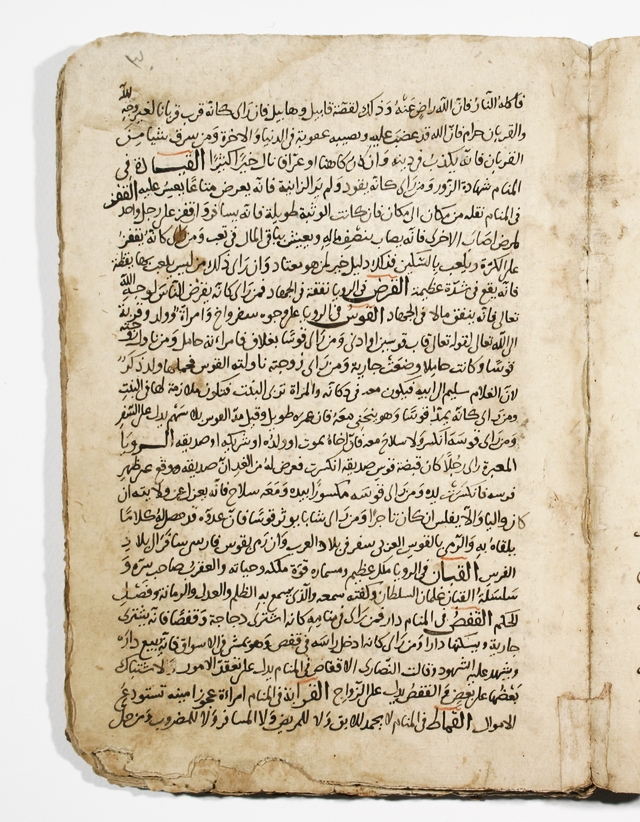 فأكله النار فان الله راض عنه وذلك لقصة قابيل وهابيل فان راى كانه قرب قربانا لغير وجه الله
والقربان حرام فان الله قد غضب عليه ونصيبه عقوبة في الدنيا والاخرة ومن سرق شيئا من
القربان فانه يكذب في دينه وان كان كاهنا او عرافا نال خيرا كثيرا القيادة في
المنام شهادة الزور ومن راى كانه يقود ولم ير الزانية فانه يعرض متاعا يعسر عليه القفز
في المنام نقله من مكان الى مكان فان كانت الوثبة طويلة فانه يسافر وان قفز على رجل واحدة
لمرض اصاب الاخرى فانه يصاب بنصف ماله ويعيش بباقي المال في تعب ومن راى كانه يقفز
على الكرة ويلعب بالسكين فذلك دليل خير لمن هو معتاد وان راى ذلك من ليس يلعب بها يقظة
فانه يقع في شدة عظيمة القرض في الرويا نفقة في الجهاد فمن راى كانه يقرض الناس لوجه الله
تعالى فانه ينفق مالا في الجهاد القوس في الرويا على وجوه سفر واخ وامراة وولد وقربة
الى الله تعالى لقوله تعالى قاب قوسين او ادنى ومن راى قوسا بغلاف فامراته حامل ومن ناول زوجته
قوسا وكانت حاملا وضعت جارية ومن راى زوجته ناولته القوس فحملها ولد ذكر
لان الغلام سليم الى ابيه فيكون معه في دكانه والمراة تربي البنت فتكون ملازمة لها في البيت
ومن راى كانه يمد قوسا وهو ينحني معه فان عمره طويل وقيل مد القوس بلا سهم يدل على السفر
ومن راى قوسه انكسر ولا سلاح معه فان اخاه يموت او ولده او شريكه او صديقه الرويا
المعبرة راى رجلا كان قبضة قوس صديقه انكسرت فعرض له من الغد ان صديقه وقع عن ظهر
فرسه فانكسرت يده ومن راى قوسه مكسورا بيده ومعه سلاح فانه يعزل عن ولايته ان
كان واليا والا يفلس ان كان تاجرا ومن راى شابا يوتر قوسا فان عدوه قد هيا له كلاما
يلقاه به والرمي بالقوس العربي سفر في بلاد العرب وان رمى بقوس فارسي سافر الى بلاد
الفرس القبان في الرويا ملك عظيم ومسماره قوة ملكه وحياته والعقرب صاحب سره و
سلسلة القبان غلمان السلطان وكفته سمعه والذي يسمع به الظلم والعدل والرمانة وفصل
الحكم القفص في المنام دار فمن راى في منامه كانه اشترى دجاجة وقفصا فانه يشترى
جارية ويسكنها دارا ومن راى كانه ادخل راسه في قفص وهو يمشى في الاسواق فانه يبيع داره
ويشهد عليه الشهود وقالت النصارى الاقفاص في المنام يدل على تعقد الامور لاشتباك
بعضها على بعض والقفص يدل على الزواج القرابة في المنام امراة عجوز امينة تستودع
الاموال القماط في المنام لا يحمد للابق ولا للمريض ولا المسافر ولا للمضروب ومن حل